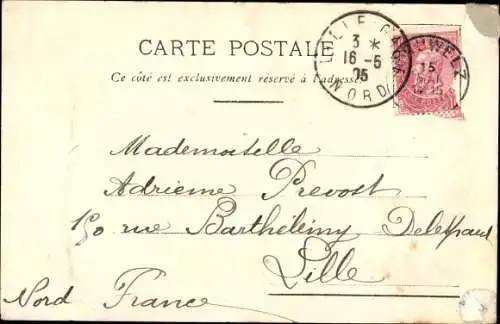 CARTE POSTALE
Ce côté est exclusivement réservé à l'adresse
LILLE-GARE
3 *
16-5
05
NORD
15
Mademoiselle
Adrienne Prevost
150 rue Barthélémy Delespaul
Lille
Nord France